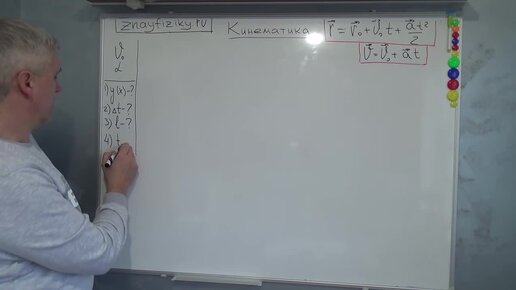 znayfiziky.ru
Кинематика
r⃗ = r⃗₀ + v⃗₀ t + a⃗ t²/2
v⃗ = v⃗₀ + a⃗ t
v⃗₀
α
1) y(x) - ?
2) Δt - ?
3) l - ?
4) t